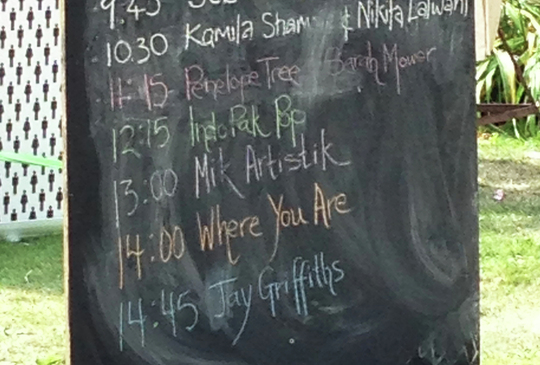 9.45
10.30 Kamila Sham & Nikita Lalwani
11:15 Penelope Tree Sarah Mower
12:15 IndoPak Pop
13:00 Mik Artistik
14:00 Where You Are
14:45 Jay Griffiths